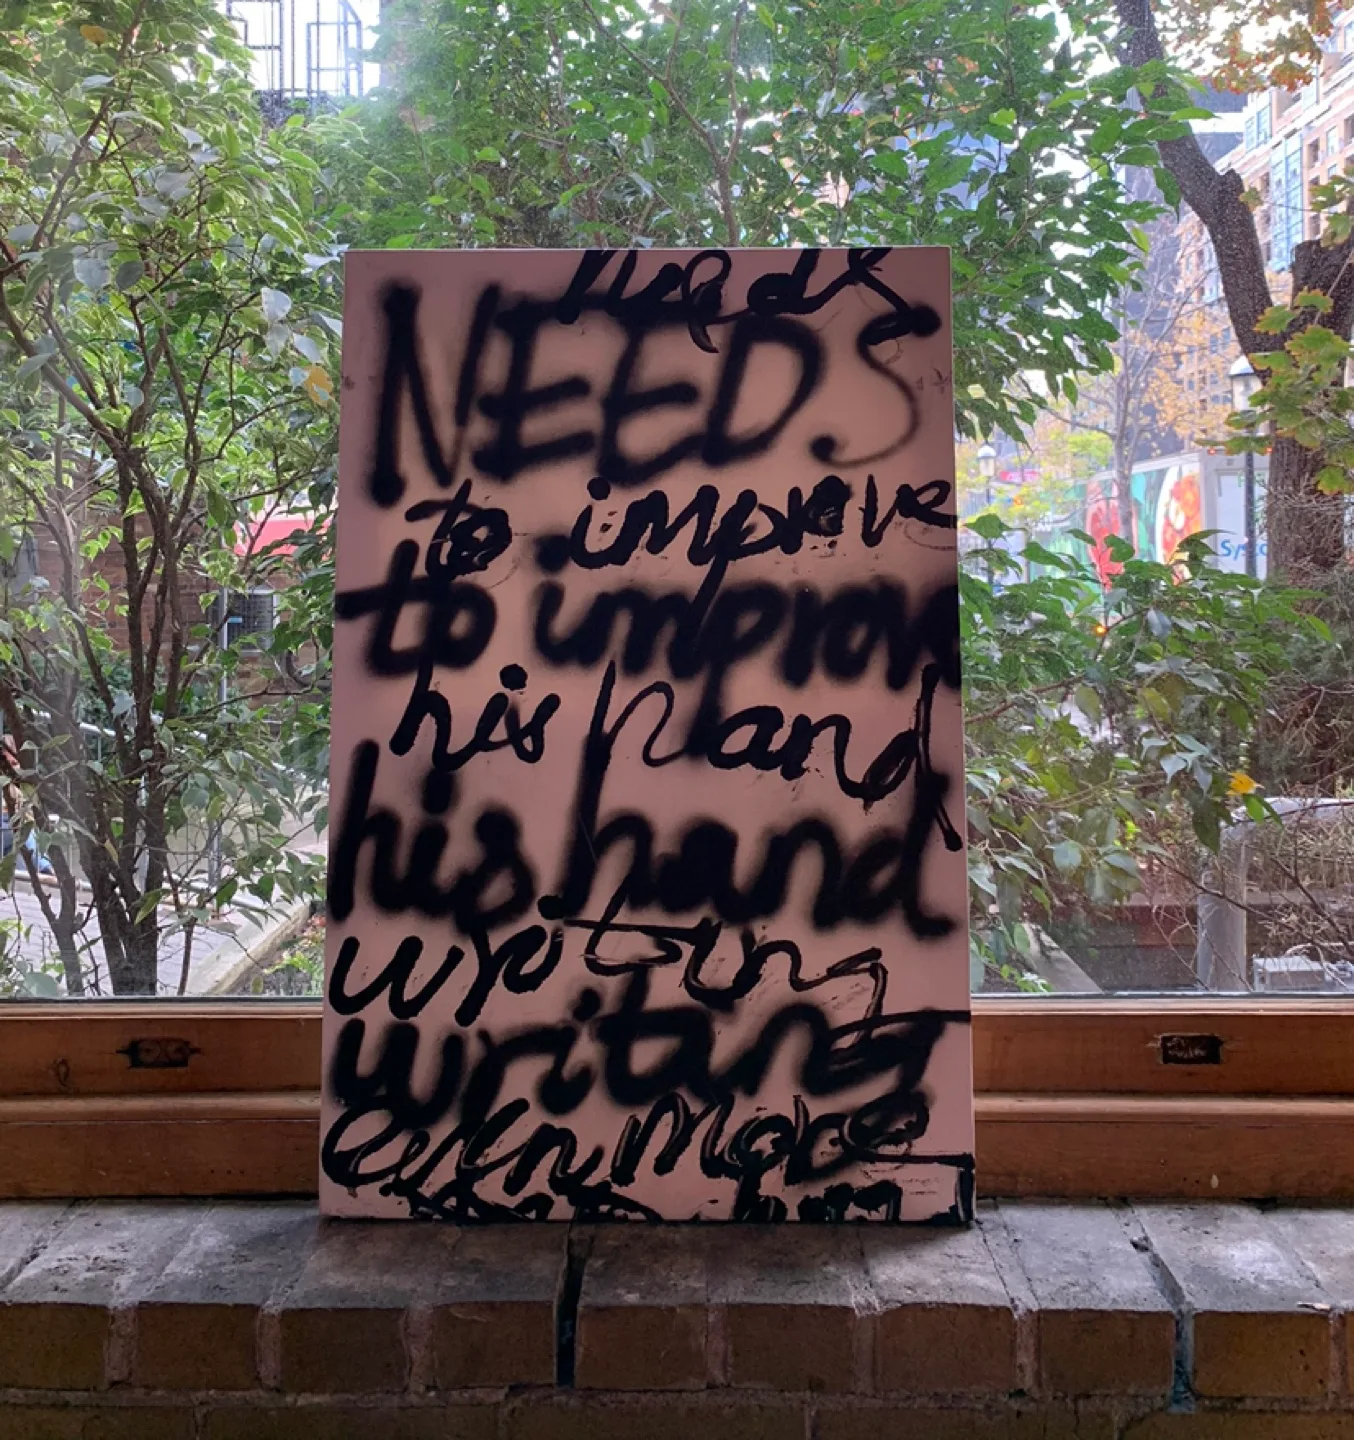 needs
NEEDS
to improve
to improv
his hand
his hand
writing
writing
even more